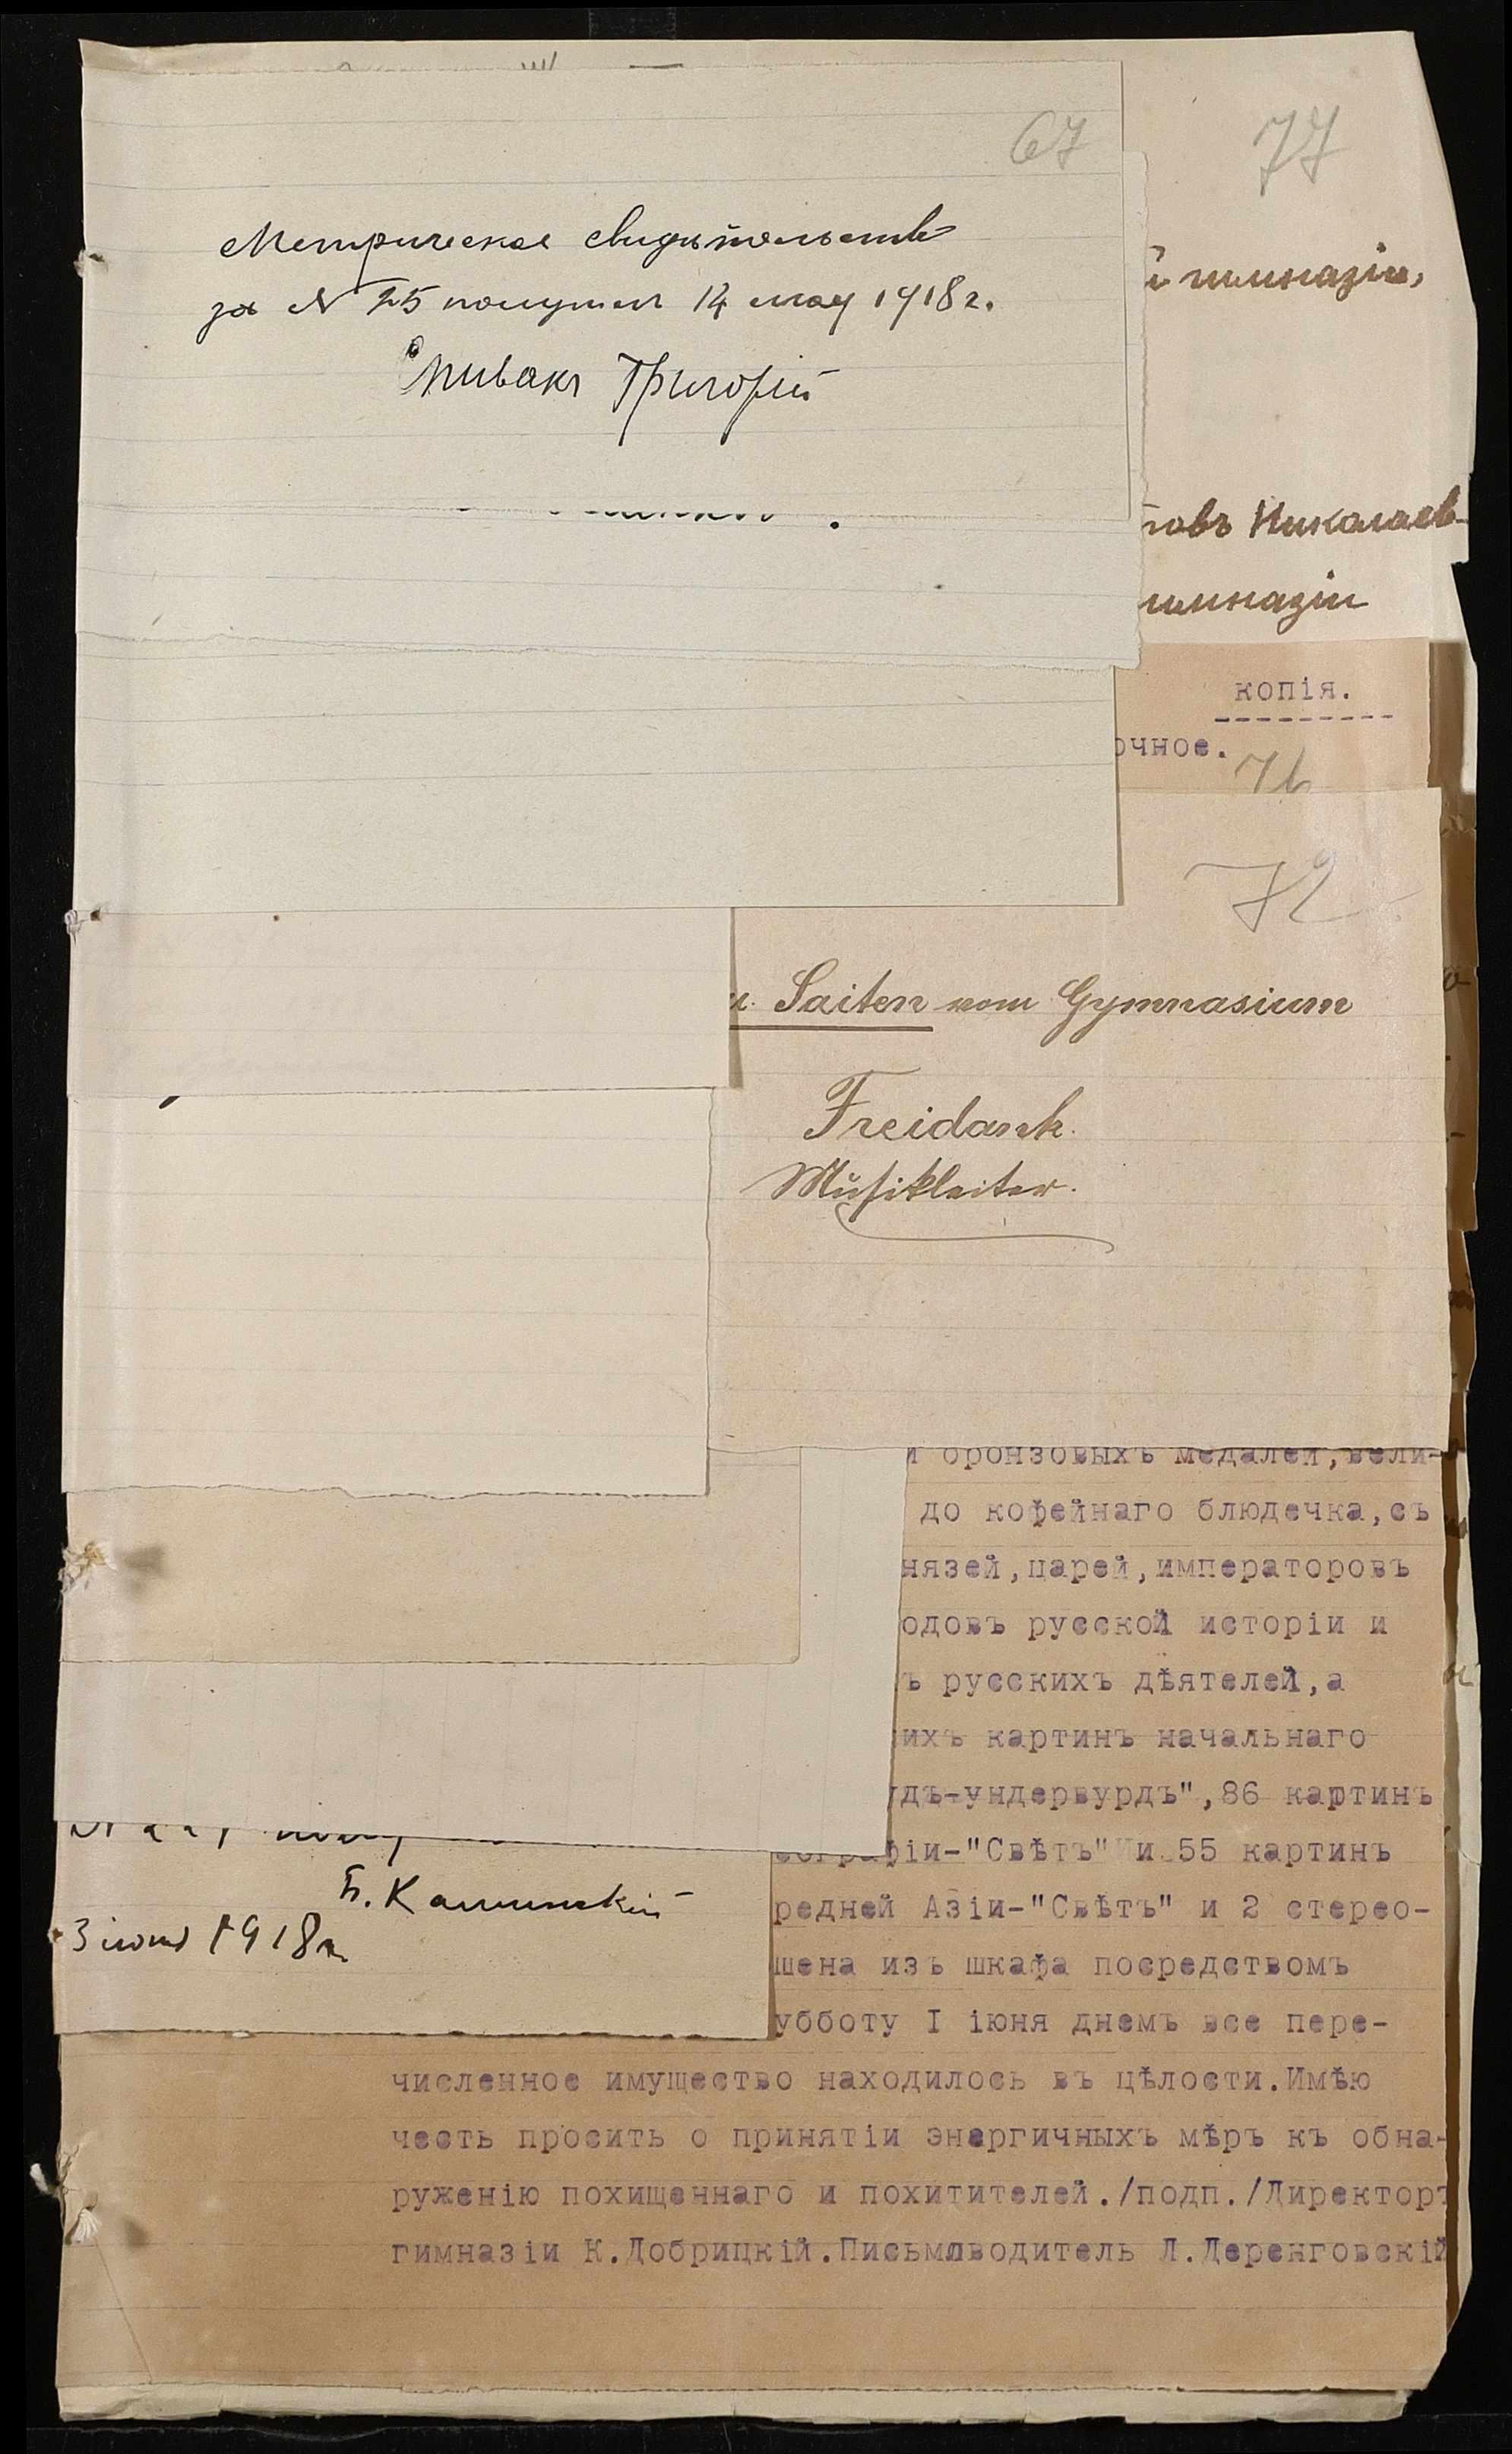 67
Метрическое свидѣтельство
за N 25 получил 14 мая 1918 г.
Спивакъ Григорій
77
й гимназіи,
товъ Николаев-
гимназіи
копія.
очное.
76
72
u. Saiten vom Gymnasium
Freidank.
Musikleiter.
и бронзовыхъ медалей, вели-
до кофейнаго блюдечка, съ
нязей, царей, императоровъ
одовъ русской исторіи и
ъ русскихъ дѣятелей, а
ихъ картинъ начальнаго
дъ-ундервурдъ", 86 картинъ
еографіи-"Свѣтъ" и 55 картинъ
редней Азіи-"Свѣтъ" и 2 стерео-
Б. Каминскій
3 июня 1918 г.
шена изъ шкафа посредствомъ
убботу I іюня днемъ все пере-
численное имущество находилось въ цѣлости. Имѣю
честь просить о принятіи энергичныхъ мѣръ къ обна-
руженію похищеннаго и похитителей. /подп./ Директоръ
гимназіи К. Добрицкій. Письмоводитель Л. Деренговскій